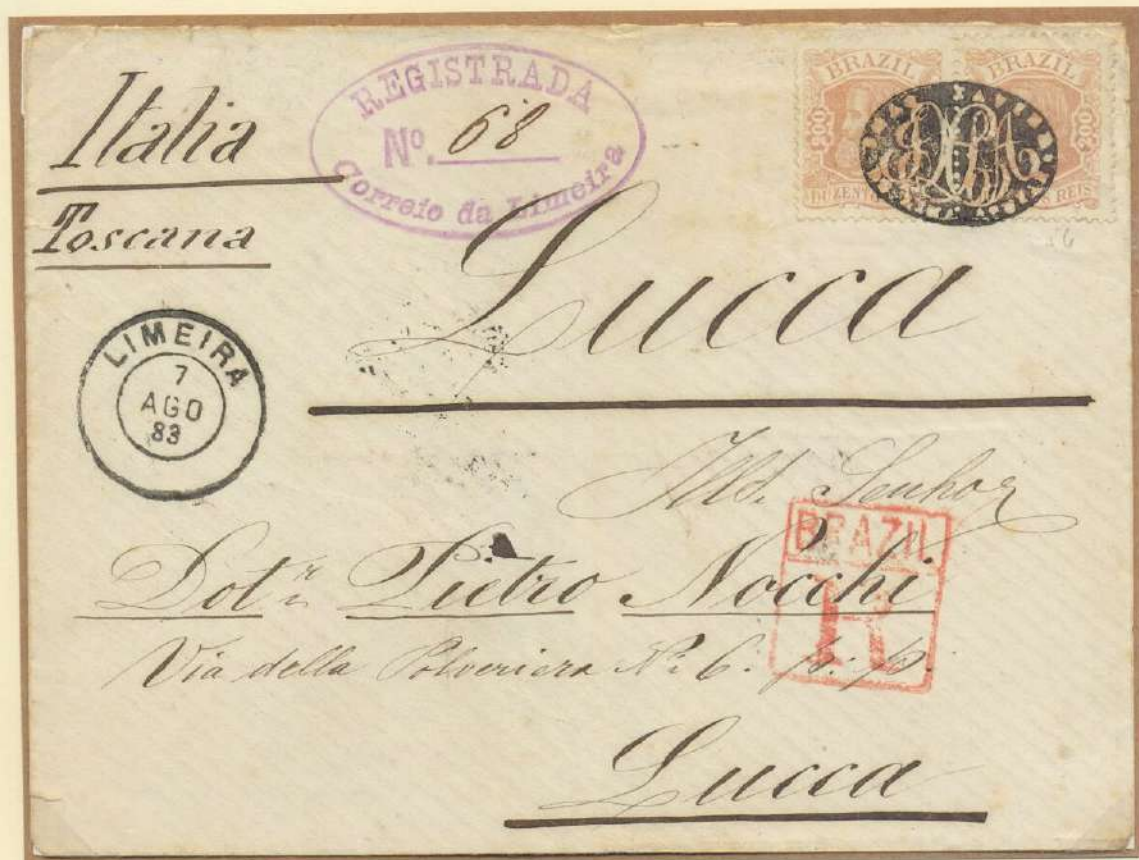 Italia
Toscana
REGISTRADA
Nº. 68
Correio da Limeira
BRAZIL BRAZIL
200 200
DUZENT S REIS
Lucca
LIMEIRA
7
AGO
83
Illd. Senhor
BRAZIL
R
Dotr. Pietro Nocchi
Via della Polveriera Nº 6. p. p.
Lucca